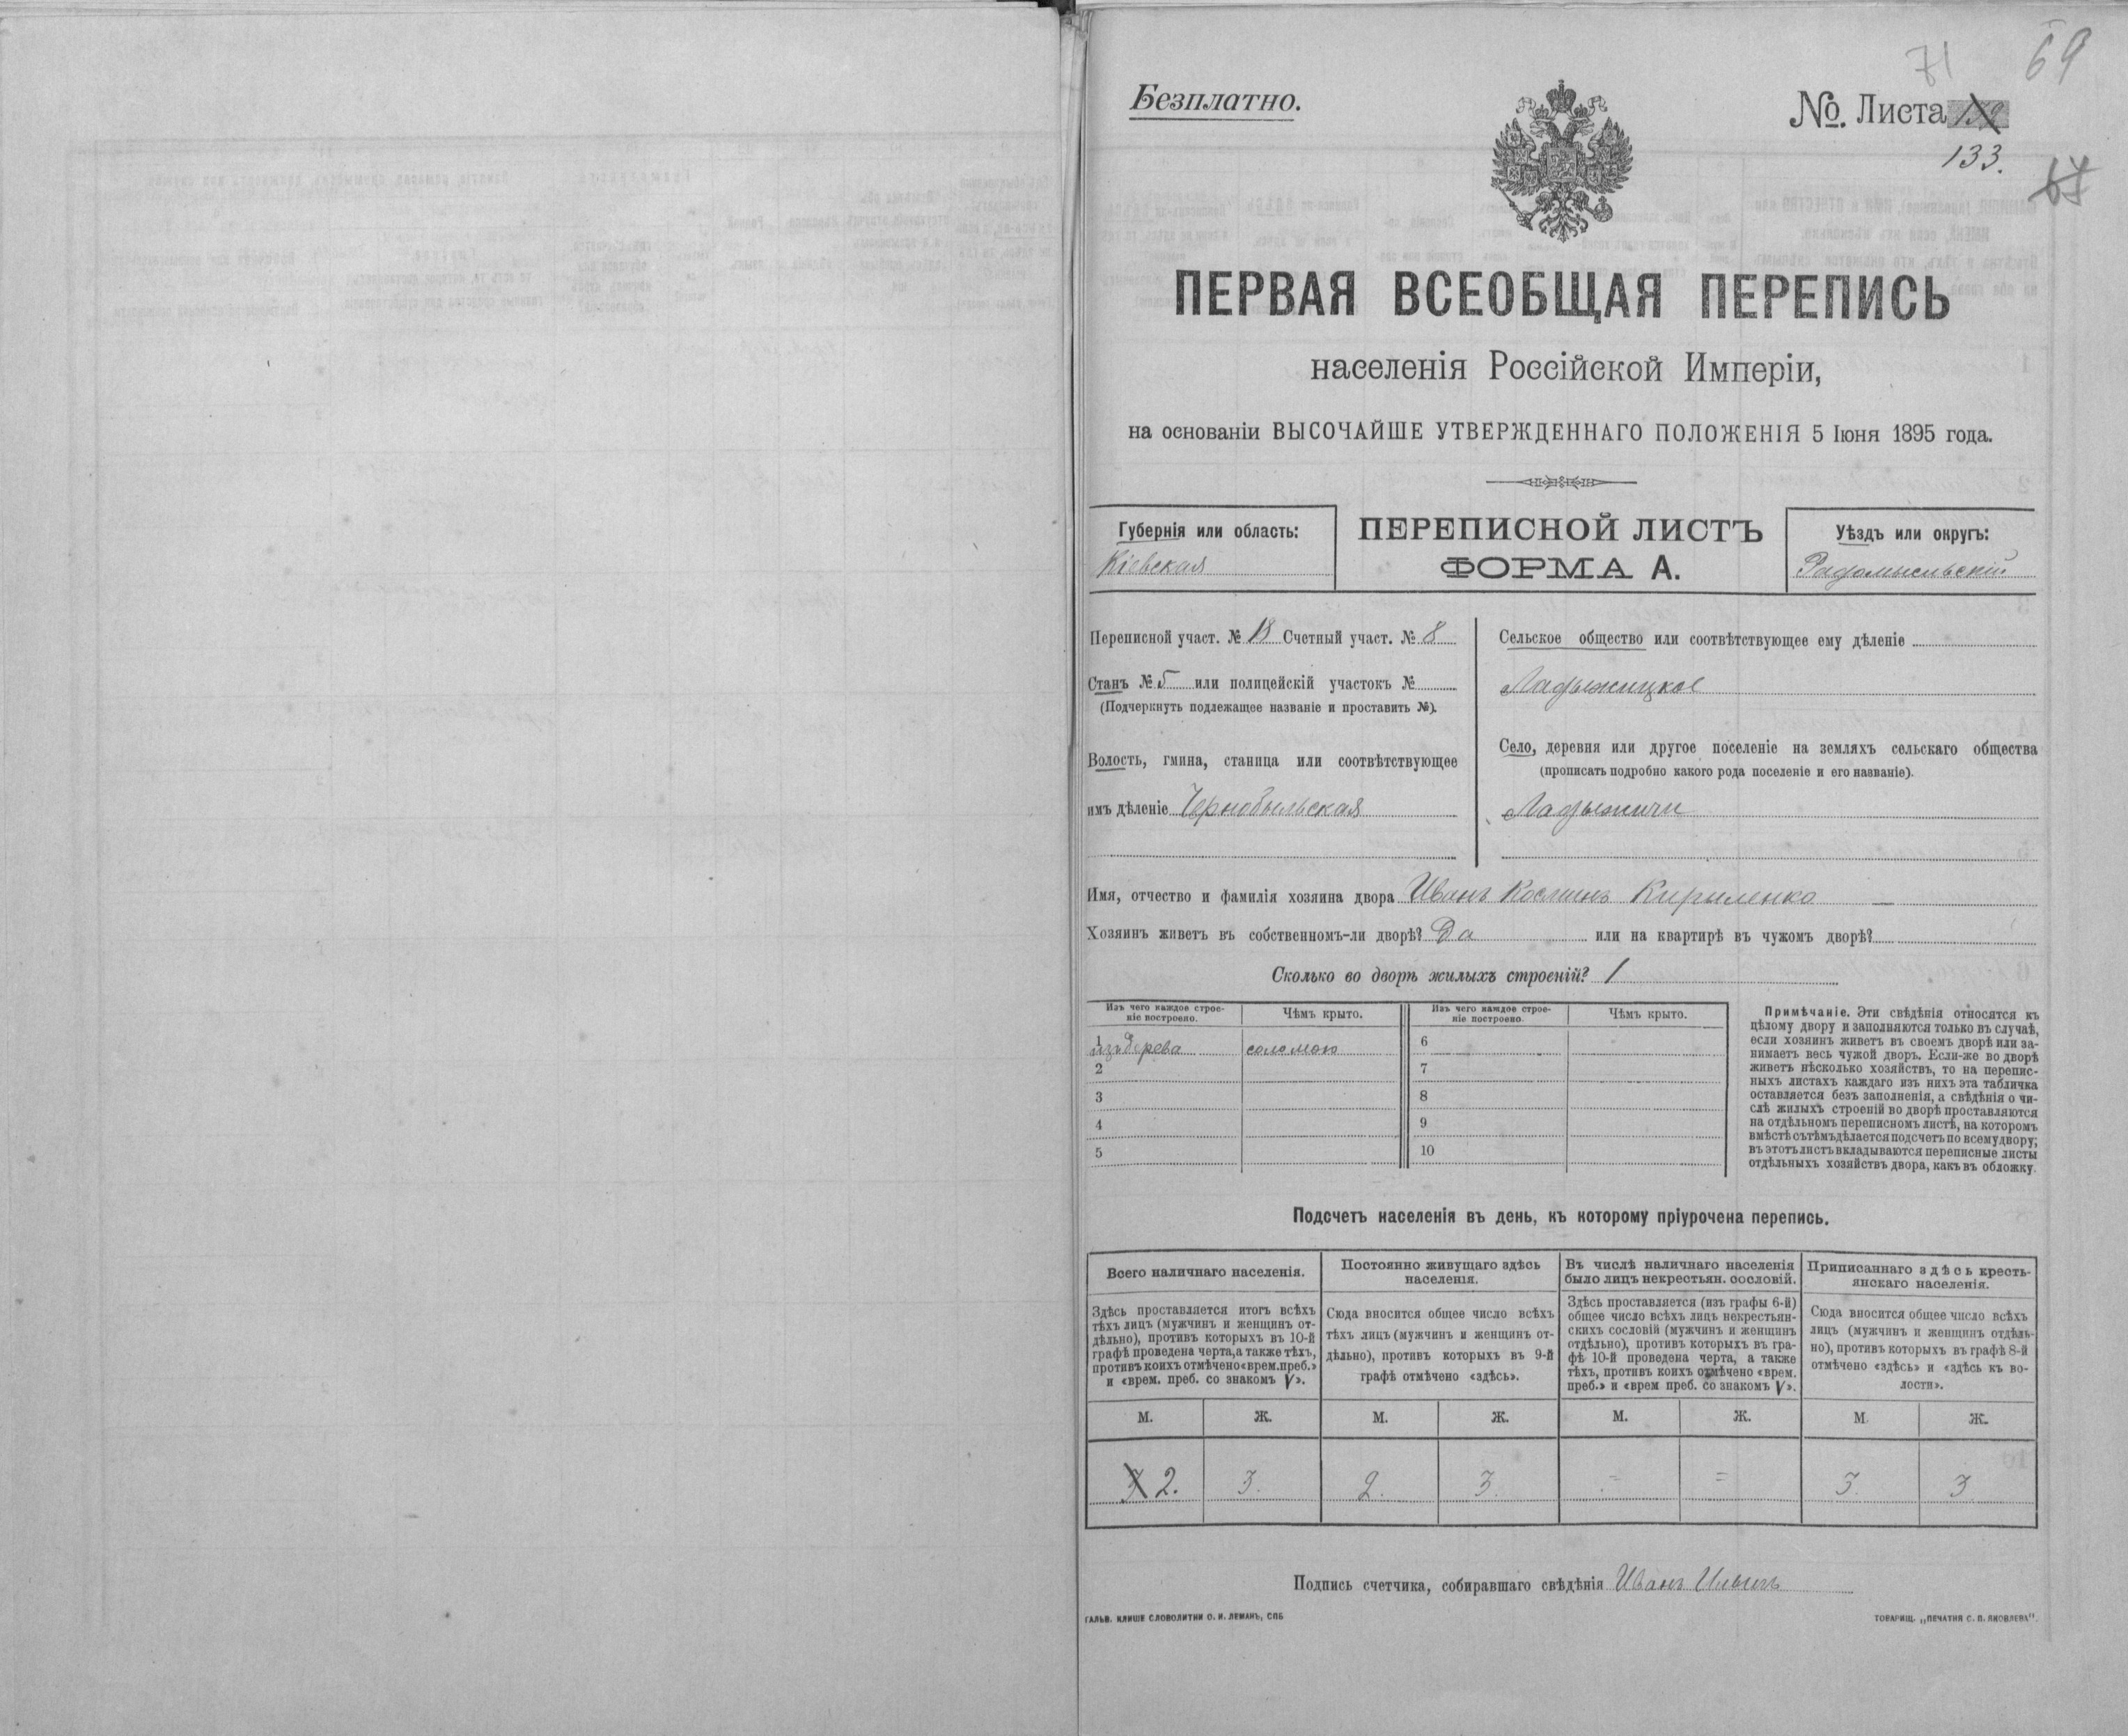 71
69
Безплатно.
№. Листа
133.
ПЕРВАЯ ВСЕОБЩАЯ ПЕРЕПИСЬ
населенія Россійской Имперіи,
на основаніи ВЫСОЧАЙШЕ УТВЕРЖДЕННАГО ПОЛОЖЕНІЯ 5 Іюня 1895 года.
Губернія или область:
Кіевская
ПЕРЕПИСНОЙ ЛИСТЪ
ФОРМА А.
Уѣздъ или округъ:
Радомысльскій
Переписной участ. № 18 Счетный участ. № 8
Станъ № 5 или полицейскій участокъ №
(Подчеркнуть подлежащее названіе и проставить №).
Волость, гмина, станица или соотвѣтствующее
имъ дѣленіе Чернобыльская
Сельское общество или соотвѣтствующее ему дѣленіе
Ладыжицкое
Село, деревня или другое поселеніе на земляхъ сельскаго общества
(прописать подробно какого рода поселеніе и его названіе).
Ладыжичи
Имя, отчество и фамилія хозяина двора Иванъ Косминъ Кириленко
Хозяинъ живетъ въ собственномъ-ли дворѣ? Да или на квартирѣ въ чужомъ дворѣ?
Сколько во дворѣ жилыхъ строеній? 1
Изъ чего каждое строе-
ніе построено.
Чѣмъ крыто.
Изъ чего каждое строе-
ніе построено.
Чѣмъ крыто.
1 изъ дерева соломою 6
2 7
3 8
4 9
5 10
Примѣчаніе. Эти свѣдѣнія относятся къ
цѣлому двору и заполняются только въ случаѣ,
если хозяинъ живетъ въ своемъ дворѣ или за-
нимаетъ весь чужой дворъ. Если-же во дворѣ
живетъ нѣсколько хозяйствъ, то на перепис-
ныхъ листахъ каждаго изъ нихъ эта табличка
оставляется безъ заполненія, а свѣдѣнія о чи-
слѣ жилыхъ строеній во дворѣ проставляются
на отдѣльномъ переписномъ листѣ, на которомъ
вмѣстѣ съ тѣмъ дѣлается подсчетъ по всему двору;
въ этотъ листъ вкладываются переписные листы
отдѣльныхъ хозяйствъ двора, какъ въ обложку.
Подсчетъ населенія въ день, къ которому пріурочена перепись.
Всего наличнаго населенія.
Здѣсь проставляется итогъ всѣхъ
тѣхъ лицъ (мужчинъ и женщинъ от-
дѣльно), противъ которыхъ въ 10-й
графѣ проведена черта, а также тѣхъ,
противъ коихъ отмѣчено «врем. преб.»
и «врем. преб. со знакомъ V».
Постоянно живущаго здѣсь
населенія.
Сюда вносится общее число всѣхъ
тѣхъ лицъ (мужчинъ и женщинъ от-
дѣльно), противъ которыхъ въ 9-й
графѣ отмѣчено «здѣсь».
Въ числѣ наличнаго населенія
было лицъ некрестьян. сословій.
Здѣсь проставляется (изъ графы 6-й)
общее число всѣхъ лицъ некрестьян-
скихъ сословій (мужчинъ и женщинъ
отдѣльно), противъ которыхъ въ гра-
фѣ 10-й проведена черта, а также
тѣхъ, противъ коихъ отмѣчено «врем.
преб.» и «врем преб. со знакомъ V».
Приписаннаго здѣсь кресть-
янскаго населенія.
Сюда вносится общее число всѣхъ
лицъ (мужчинъ и женщинъ отдѣль-
но), противъ которыхъ въ графѣ 8-й
отмѣчено «здѣсь» и «здѣсь къ во-
лости».
М. Ж. М. Ж. М. Ж. М. Ж.
3 2. 3. 2. 3. = = 3. 3
Подпись счетчика, собиравшаго свѣдѣнія Иванъ
ГАЛЬВ. КЛИШЕ СЛОВОЛИТНИ О. И. ЛЕМАНЪ, СПБ
ТОВАРИЩ. „ПЕЧАТНЯ С. П. ЯКОВЛЕВА“.